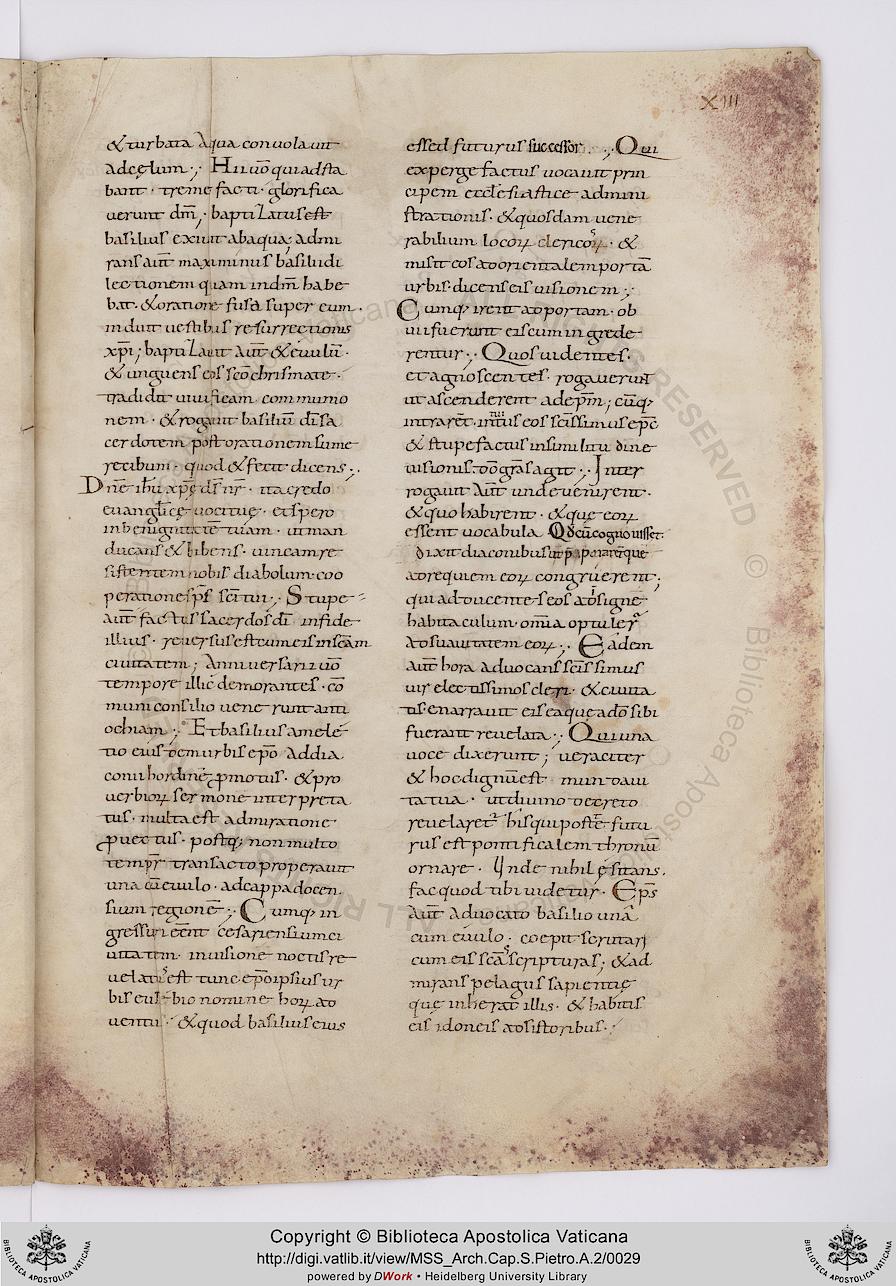 XIII
& turbata aqua convolavit
ad cęlum ·,· Hii uō qui adsta
bant · tremefacti · glorifica
verunt dm̄ ,· baptizatus est
basilius exivit ab aqua; admi
rans aut̄ maximinus basilii di
lectionem quam in dm̄ habe
bat · & oratione fusa super eum ·
induit vestibus resurrectionis
xp̄i ; baptizavit aut̄ & evulū ·
& unguens eos sc̄o chrismate ·
tradidit vivificam commumo
nem · & rogavit basiliū di sa
cerdotem post orationem sume
re cibum · quod & fecit dicens ·,·
Dn̄e ihū xp̄ę ds̄ nr̄ · ita credo
evanglicę vocituę · et spero
in benignitatē tuam · ut man
ducans & bibens · vincam re
sistentem nobis diabolum · coo
peratione sps̄ sc̄i tui ·,· Stupe
aut̄ factus sacerdos dī in fide
illius · reversus est cum eis in sc̄am
civitatem ; Anniversarii uō
tempore illic demorantes · cō
muni consilio venerunt anti
ochiam ·,· Et basilius a mele
tio eius dem urbis ep̄o ad dia
conii hordinē promotus · & pro
verbiorꝝ sermone interpreta
tus · multa est admiratione
provectus · postq; non multo
tempr̄ transacto properavit
una cū evulo · ad cappadocen
sium regionē ·,· Cumq; in
gressuri eēnt cesariensium ci
vitatem · in visione noctis re
velatū est tunc ep̄o ipsius ur
bis eusebio nomine horꝝ ad
ventū · & quod basilius eius
essed futurus successor · ,· Qui
experge factus vocavit prin
cipem ecclesiasticę admini
strationis · & quosdam vene
rabilium locorꝝ clericos · &
misit eos ad orientalem portā
urbis · dicens eis visionem ·,·
Cumq; irent ad portam · ob
vii fuerunt eis cum ingrede
rentur ·,· Quos videntes ·
et agnoscentes · rogaverunt
ut ascenderent ad epm̄ ; cūq;
intrarēt · intuitus eos sc̄issimus epc̄
& stupefactus in similitudine
visionis · dō grās agit ·,· Inter
rogavit aut̄ unde venirent ·
& quo habirent · & quę eorꝝ
essent vocabula Qd cū cognovisset ·
dixit diaconibus ut pꝑararent que
ad requiem eorꝝ congruerent ;
qui adducentes eos ad signē
habitaculum · omīa optuler̄
ad suavitatem eorꝝ ·,· Eadem
aut̄ hora advocans sc̄issimus
vir electissimos cleri · & civita
tis · enarravit eis ea que a dō sibi
fuerant revelata ·,· Qui una
voce dixerunt ; veraciter
& hoc dignū est mundavi
ta tua · ut divino decreto
revelaret̄ his qui post te futu
rus est pontificalem thronū
ornare · Unde nihil ęsitans ·
fac quod tibi videtur · Eps̄
aut̄ advocato basilio unā
cum evulo · coepit scrutari
cum eis sc̄as scripturas ; & ad
mirans pelagus sapientię
quę inherat illis · & habitis
eis idoneis adsistoribus ·
Copyright © Biblioteca Apostolica Vaticana
http://digi.vatlib.it/view/MSS_Arch.Cap.S.Pietro.A.2/0029
powered by DWork • Heidelberg University Library